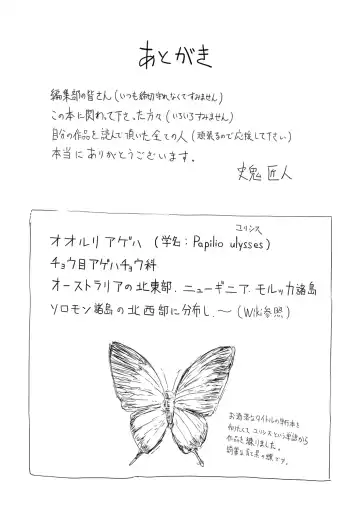 あとがき
編集部の皆さん(いつも締切守れなくてすみません)
この本に関わって下さった方々(いろいろすみません)
自分の作品を読んで頂いた全ての人(頑張るので応援して下さい)
本当にありがとうございます。
匠人
ユリシス
オオルリアゲハ (学名:Papilio ulysses)
チョウ目アゲハチョウ科
オーストラリアの北東部、ニューギニア、モルッカ諸島
ソロモン諸島の北西部に分布し、〜(Wiki参照)
お洒落なタイトルの単行本を
ユリシスという単語から
作品を練りました。
綺麗な青の蝶です。